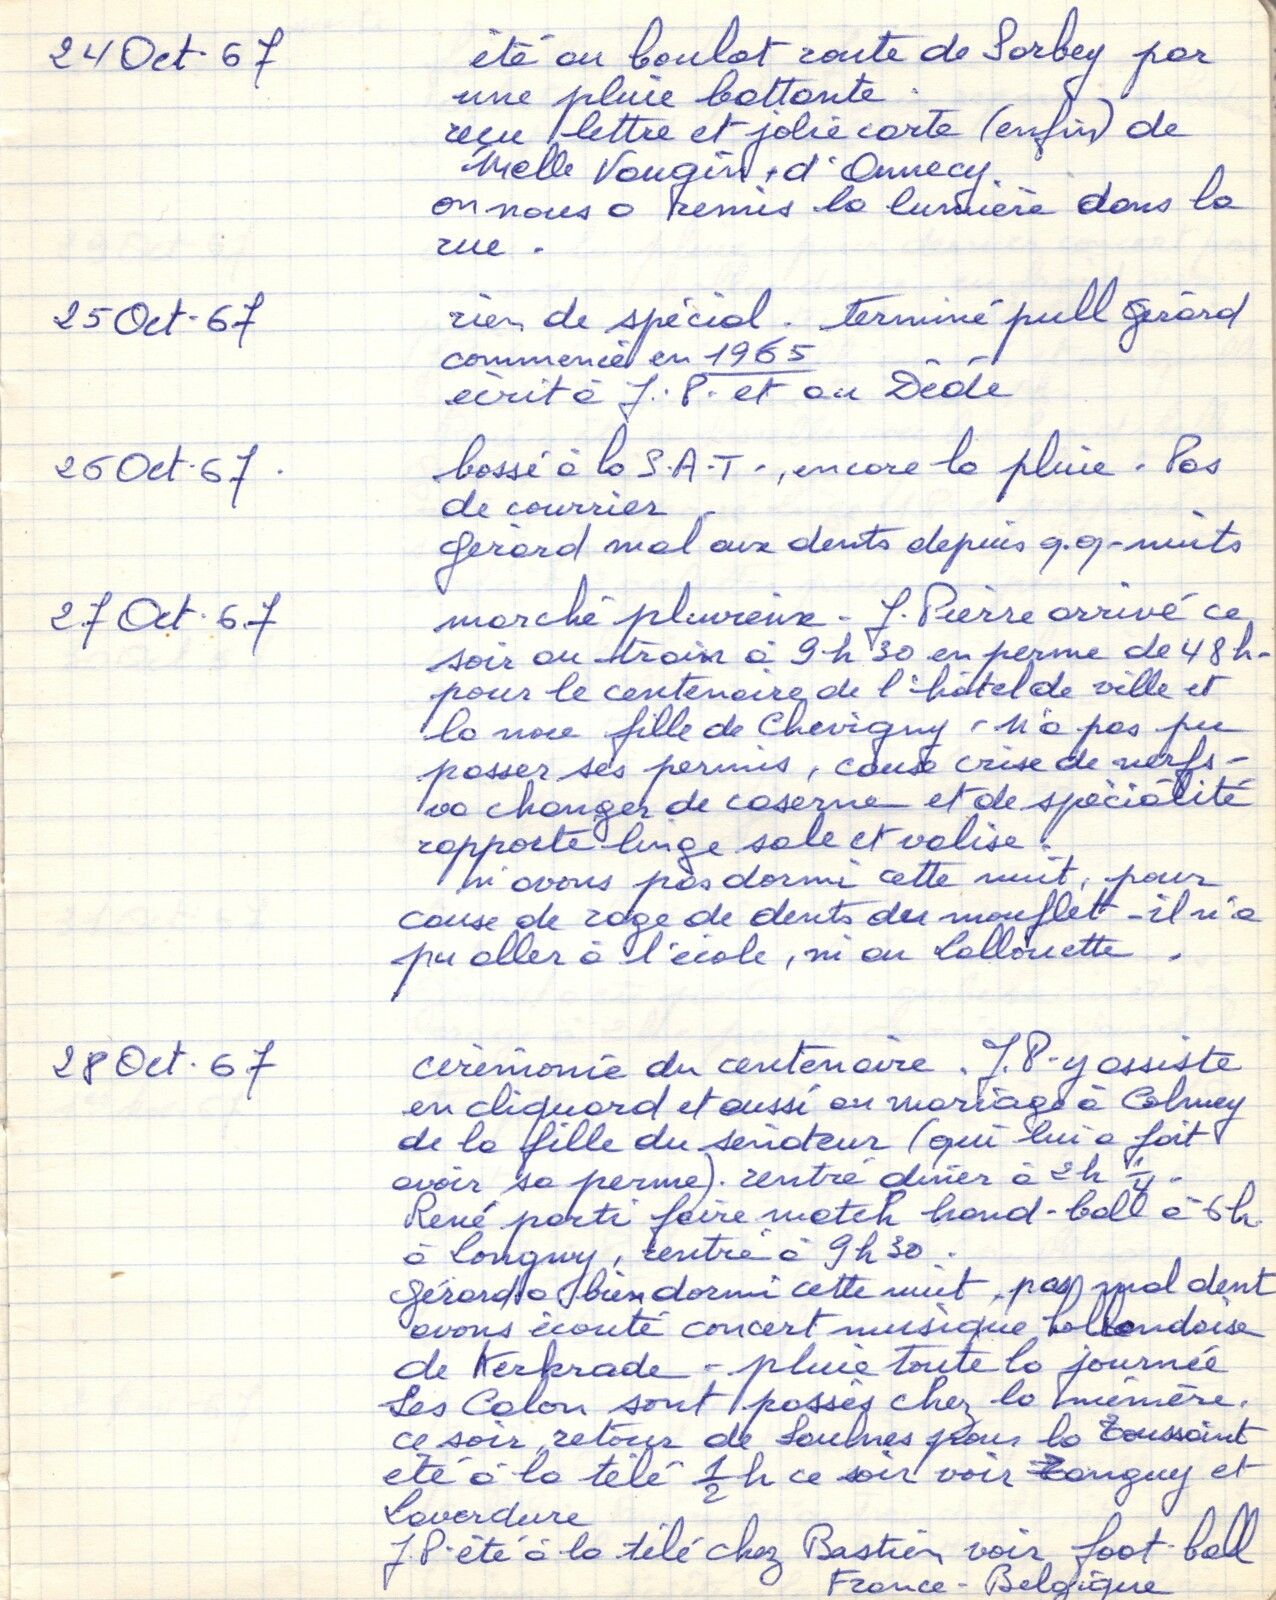 24 Oct. 67 été au boulot route de Sorbey par
une pluie battante.
reçu lettre et jolie carte (enfin) de
Melle Vaugin, d'Annecy.
on nous a remis la lumière dans la
rue.
25 Oct. 67 rien de spécial. terminé pull Gérard
commencé en 1965
écrit à J.P. et au Dédé
26 Oct. 67. bossé à la S.A.T., encore la pluie. Pas
de courrier.
Gérard mal aux dents depuis q.q. nuits
27 Oct. 67 marché pluvieux. J. Pierre arrivé ce
soir au train à 9h30 en perme de 48h.
pour le centenaire de l'hôtel de ville et
la noce fille de Chevigny. n'a pas pu
passer ses permis, cause crise de nerfs -
va changer de caserne et de spécialité
rapporte linge sale et valise.
n'avons pas dormi cette nuit, pour
cause de rage de dents du mouflet - il n'a
pu aller à l'école, ni au Lallouette.
28 Oct. 67 cérémonie du centenaire. J.P. y assiste
en cliquard et aussi au mariage à Colmey
de la fille du sénateur (qui lui a fait
avoir sa perme). rentré dîner à 2h 1/4.
René parti faire match hand-ball à 6h
à Longwy, rentré à 9h30.
Gérard a bien dormi cette nuit, pas mal dent
avons écouté concert musique hollandaise
de Kerkrade - pluie toute la journée
Les Colon sont passés chez la mémère.
ce soir, retour de Saulnes pour la Toussaint
été à la télé 1/2 h ce soir voir Tanguy et
Laverdure
J.P. été à la télé chez Bastien voir foot-ball
France-Belgique